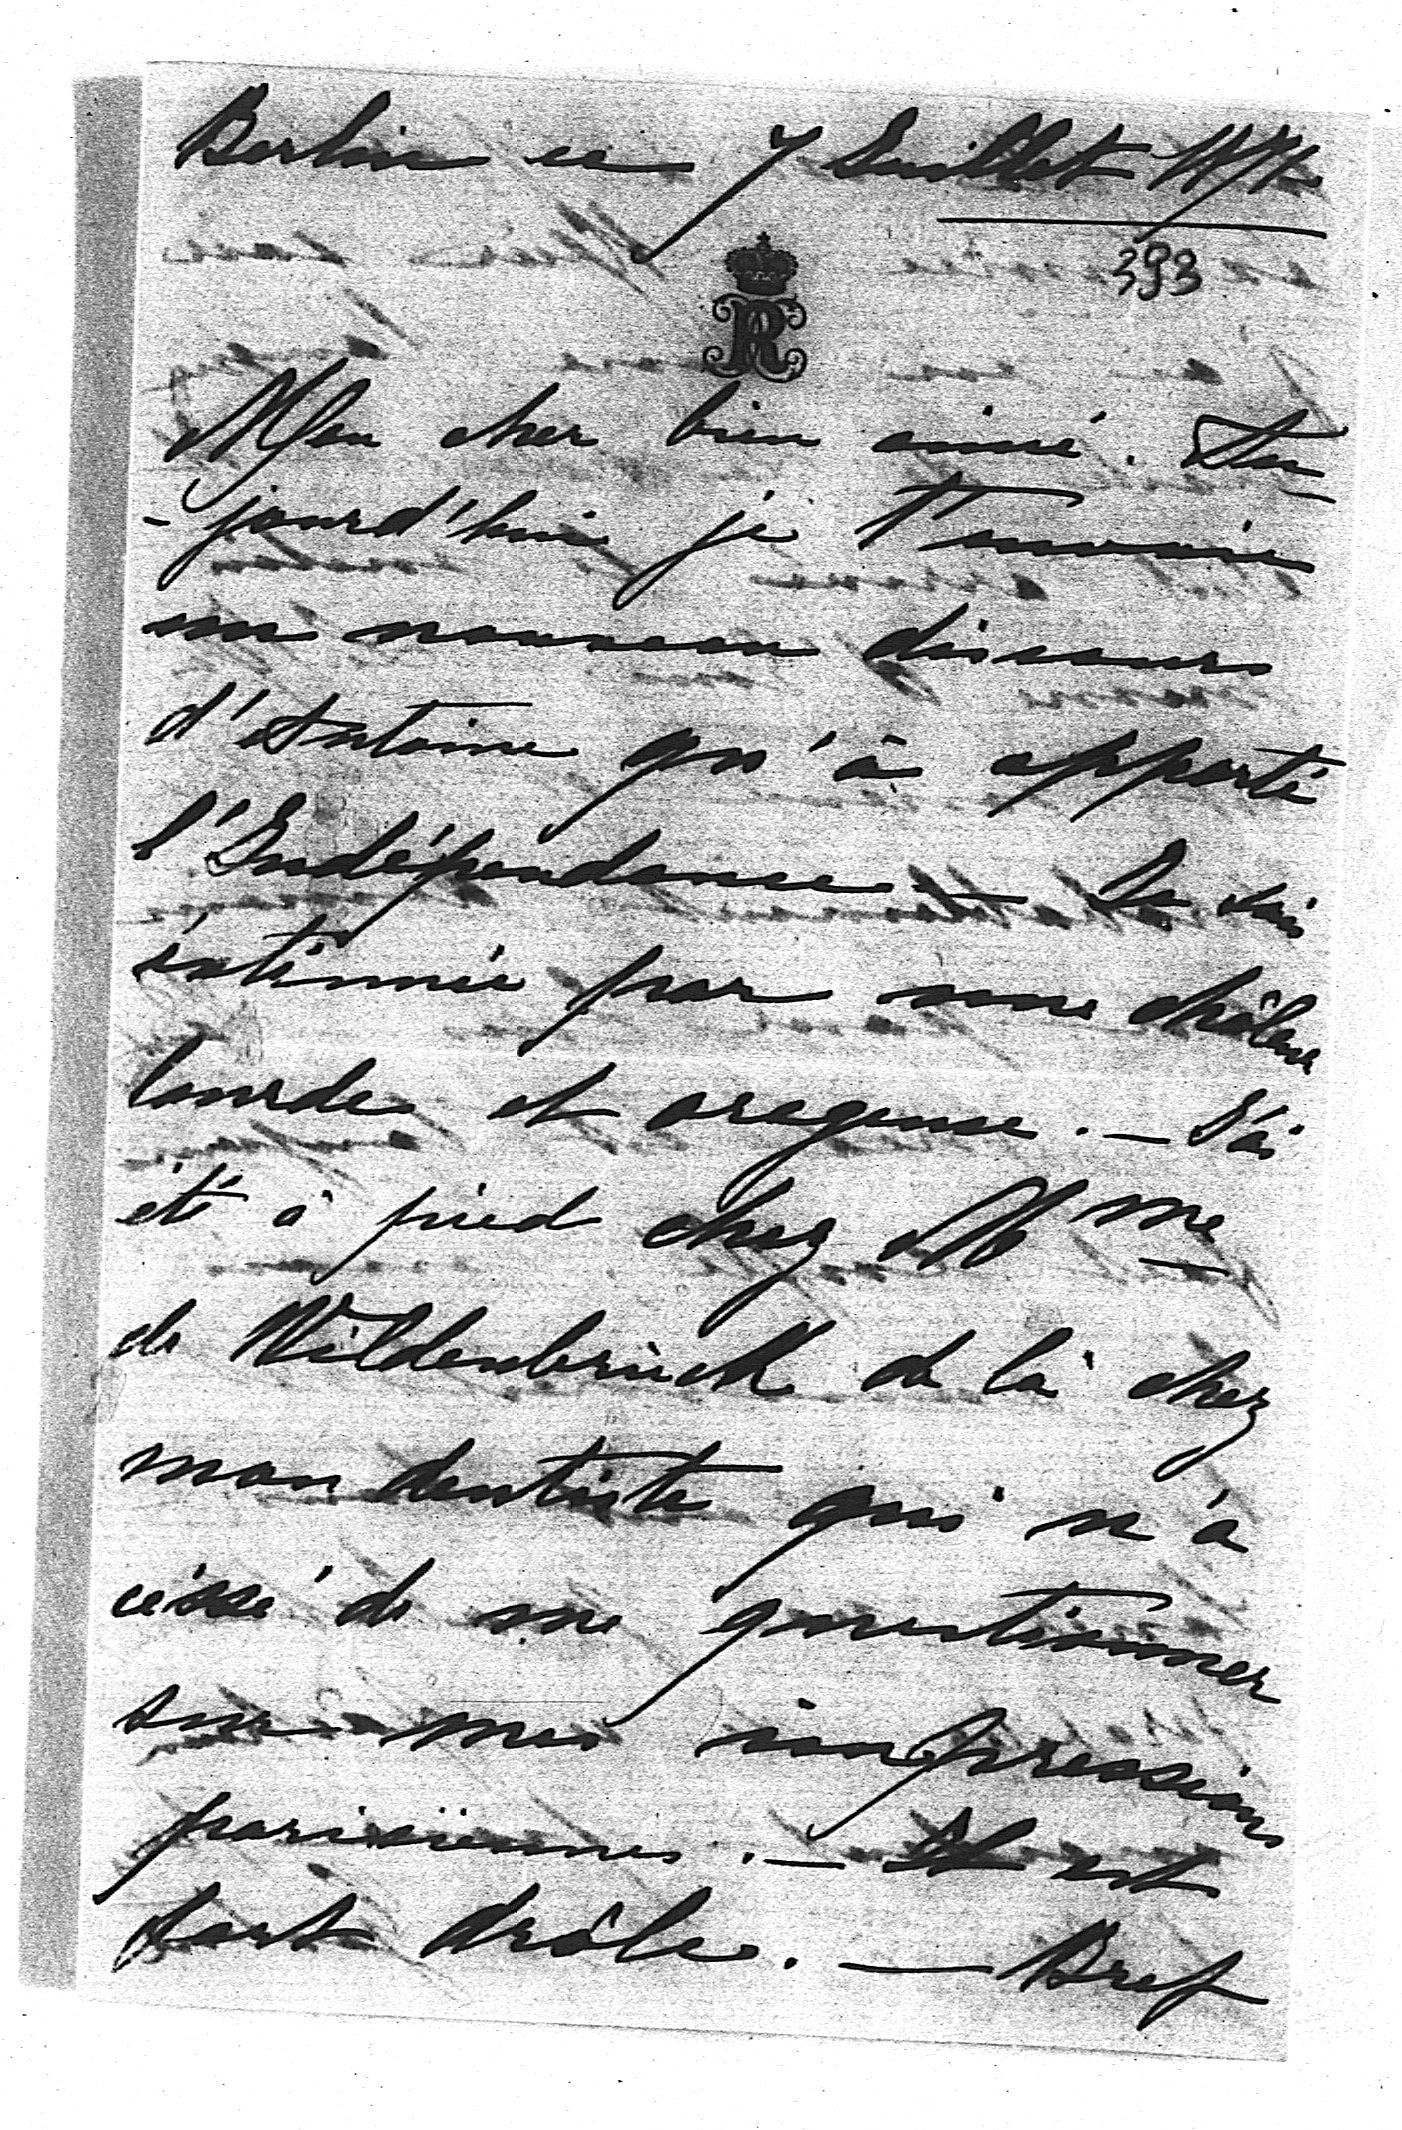 Berlin ce 7 Juillet
393
R
Mon cher bien aimé. Au-
-jourd'hui je T'envoie
un nouveau discours
d'Antoine qu'à apporté
l'Indépendance — Je suis
éxtenuée par une châleur
lourde et orageuse. — J'ai
été à pied chez Mme
de Wildenbrück de là chez
mon dentiste qui n'à
céssé de me questionner
sur mes impressions
parisiennes. — Il est
fort drôle. — Bref